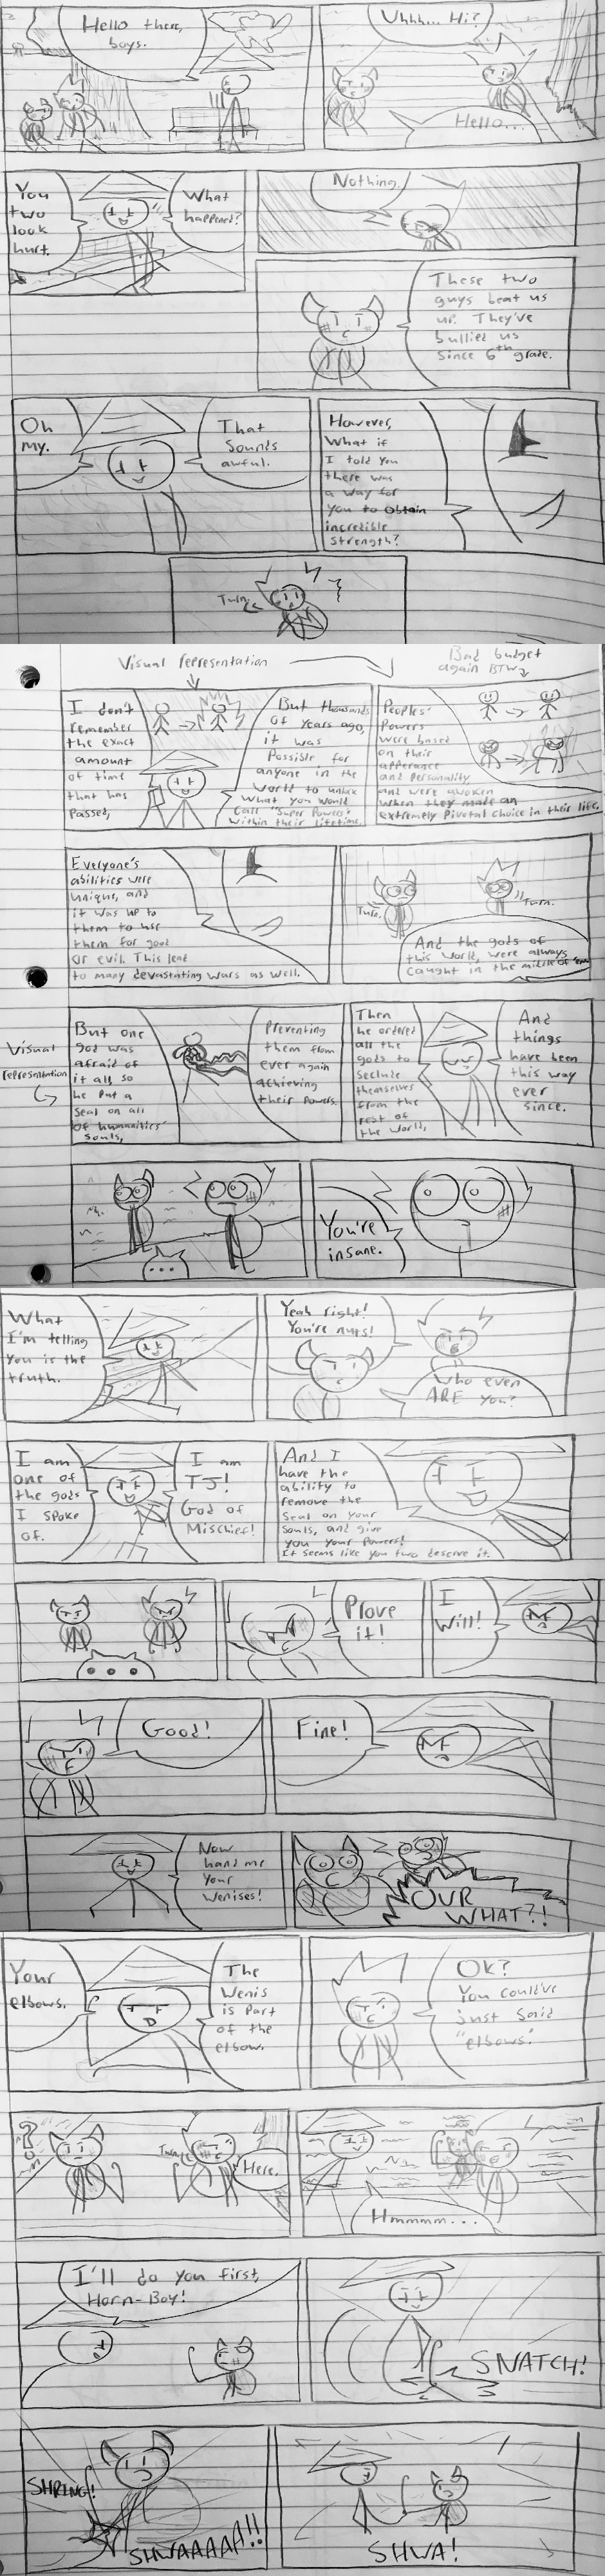 Hello there,
boys.
Uhhh... Hi?
Hello...
You
two
look
hurt.
What
happened?
Nothing.
These two
guys beat us
up. They've
bullied us
since 6th grade.
Oh
my.
That
Sounds
awful.
However,
What if
I told you
there was
a way for
you to obtain
incredible
strength?
Turn.
Visual representation
Bad budget
again BTW
I don't
remember
the exact
amount
of time
that has
passed,
But thousands
of years ago,
it was
Possible for
anyone in the
world to unlock
what you would
Call "Super Powers"
Within their lifetime.
Peoples'
Powers
were based
on their
apperance
and personality,
and were awoken
when they made an
extremely Pivotal choice in their life.
Everyone's
abilities were
unique, and
it was up to
them to use
them for good
or evil. This lead
to many devastating wars as well.
Turn.
Turn.
And the gods of
this world, were always
caught in the middle of
Visual
representation
But one
god was
afraid of
it all, so
he put a
Seal on all
of humanities'
souls,
Preventing
them from
ever again
achieving
their powers.
Then
he ordered
all the
gods to
seclude
themselves
from the
rest of
the world,
And
things
have been
this way
ever
since.
...
You're
insane.
What
I'm telling
you is the
truth.
Yeah right!
You're nuts!
Who even
ARE you?
I am
one of
the gods
I spoke
of.
I am
TJ!
God of
Mischief!
And I
have the
ability to
remove the
Seal on your
Souls, and give
you your Powers!
It seems like you two deserve it.
...
Prove
it!
I
Will!
Good!
Fine!
Now
hand me
your
Wenises!
OUR
WHAT?!
Your
elbows.
The
Wenis
is part
of the
elbow.
Ok?
You could've
just said
"elbows".
?
Twinge
Here.
Hmmmm...
I'll do you first,
Horn-Boy!
SNATCH!
SHRING!!
SHWAAAAA!!
SHWA!